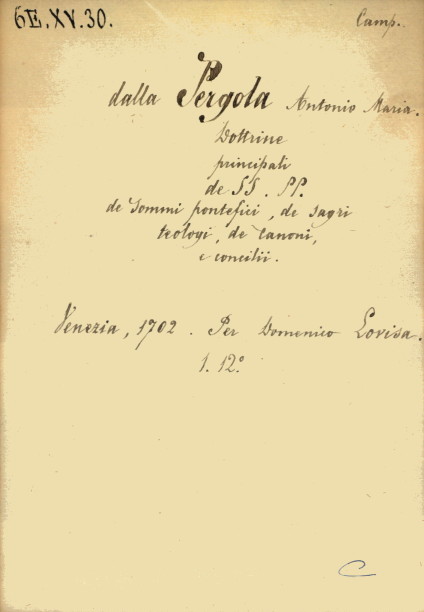 6E.XV.30.
Camp.
dalla Pergola Antonio Maria.
Dottrine
principali
de SS. PP.
de Sommi pontefici, de sagri
teologi, de canoni,
e concilii.
Venezia, 1702. Per Domenico Lovisa.
1. 12.°
C